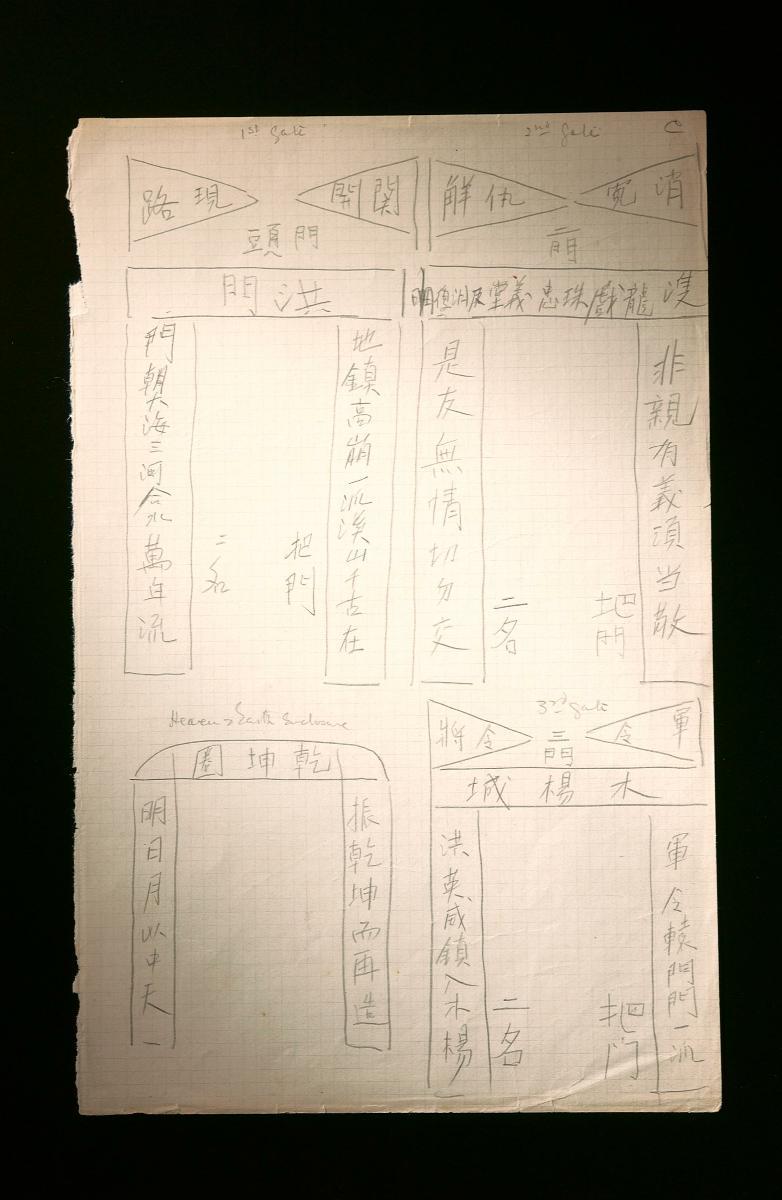 1st Gate
2nd Gate
C
関開
現路
頭門
洪門
地鎮高崩一派溪山千古在
門朝大海三河合水萬年流
把門
二名
消宽
仇解
二門
雙龍戲珠忠義堂反
明
非親有義須当敬
是友無情切勿交
把門
二名
Heaven & Earth Enclosure
乾坤圈
振乾坤而再造
明日月以中天
3rd gate
軍令
將令
三門
木楊城
軍令轅門門一派
洪英威鎮入木楊
把門
二名